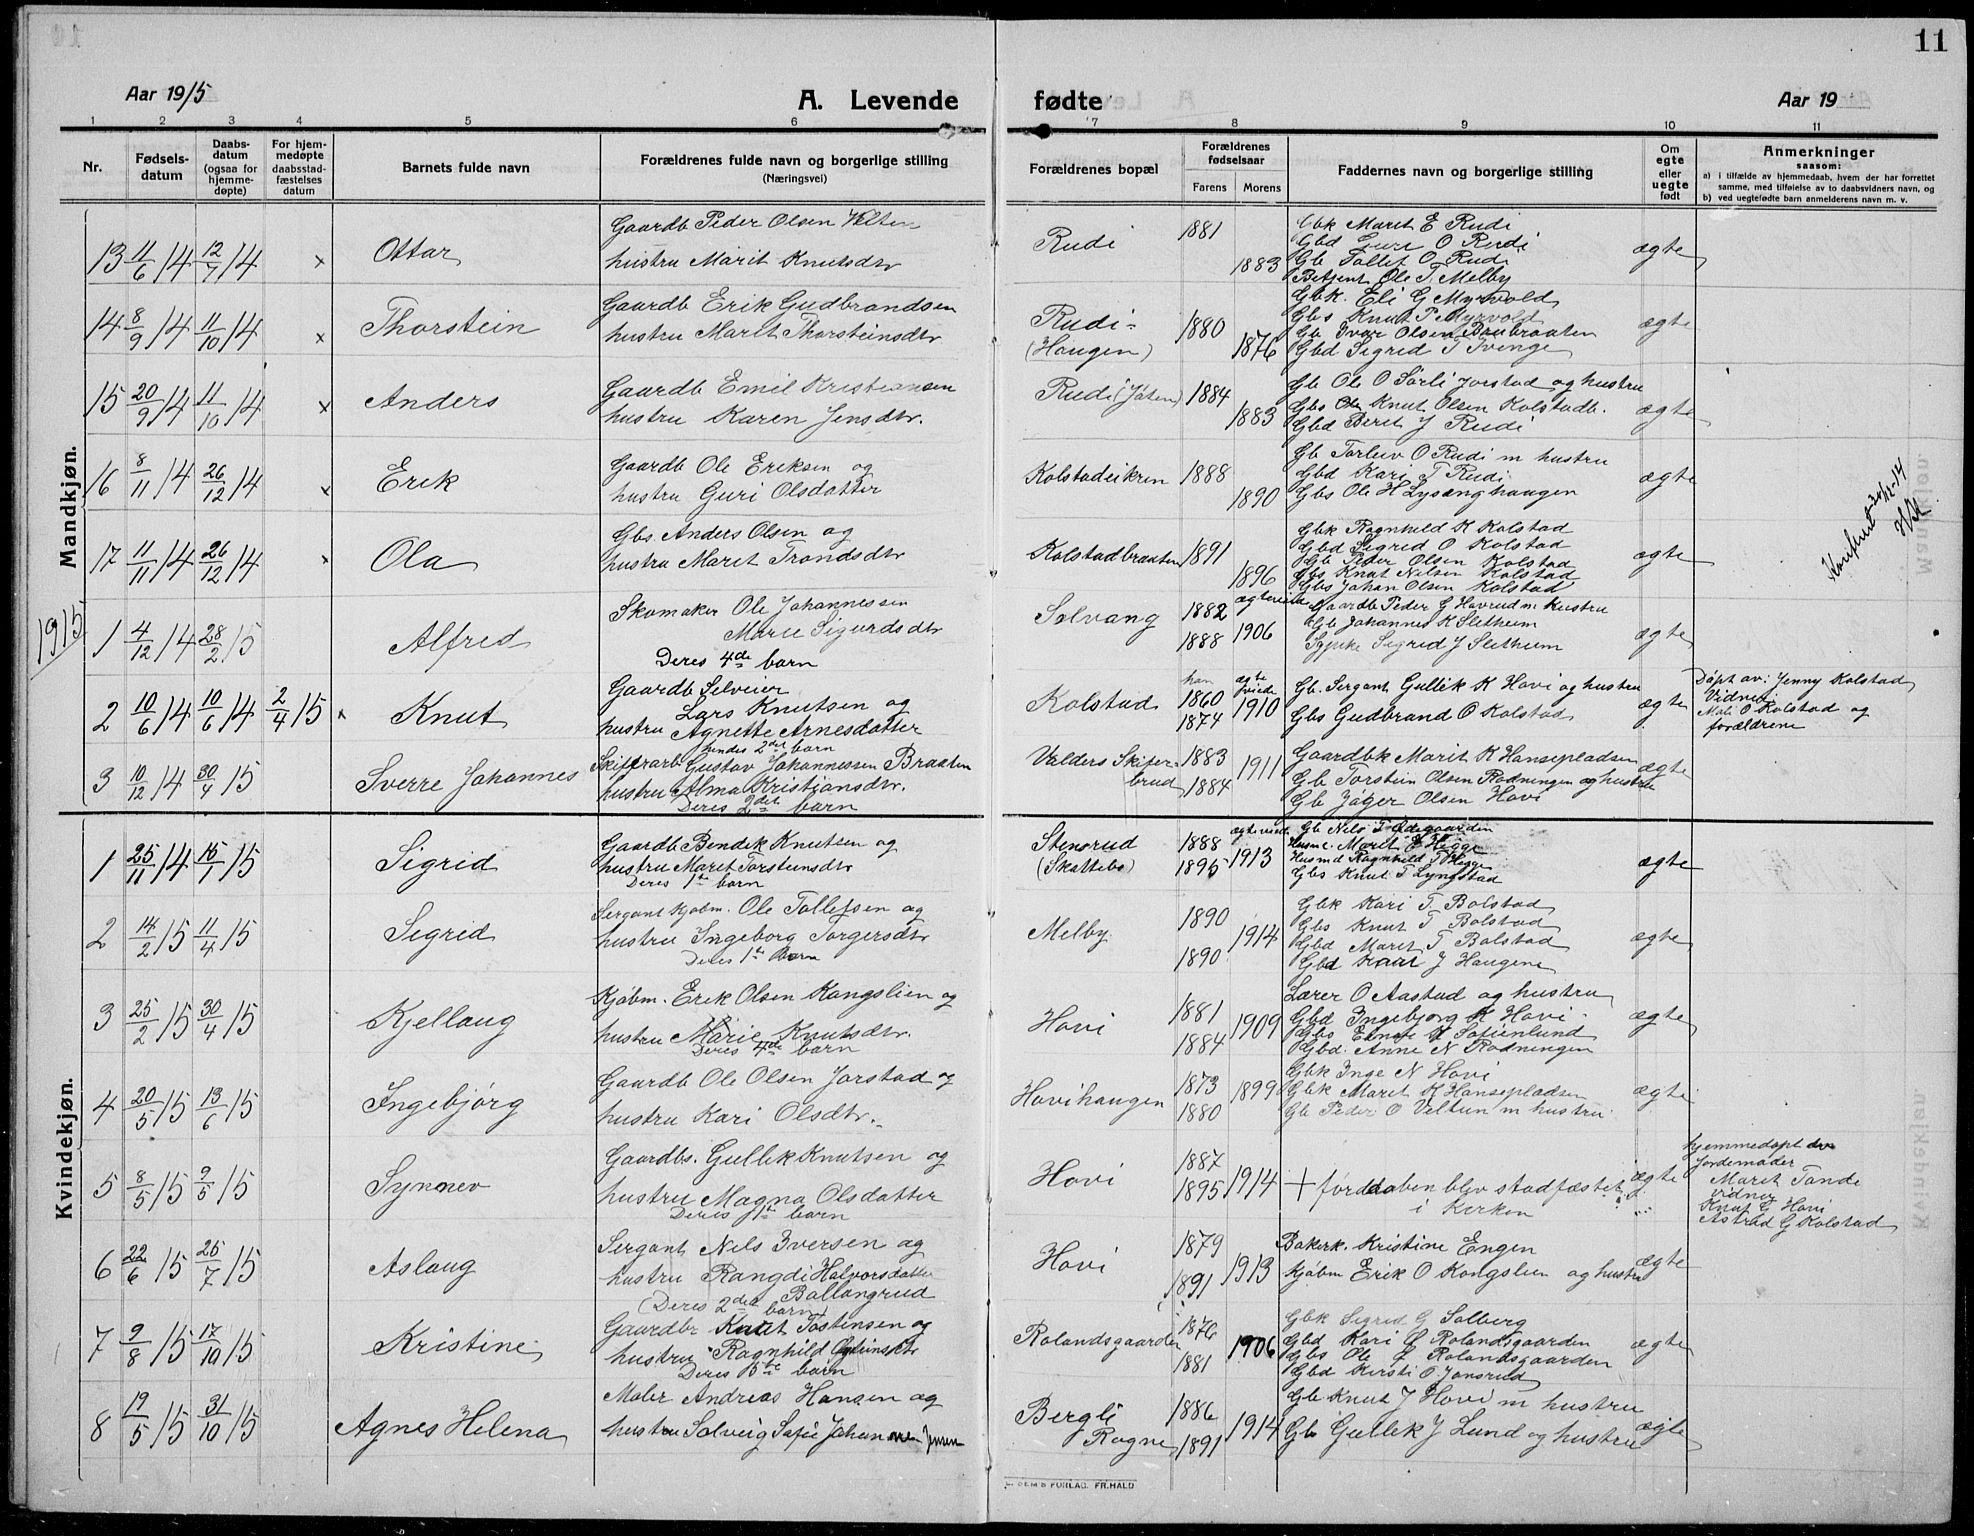 11
Aar 1915
A. Levende fødte
Aar 19
1 2 3 4 5 6 7 8 9 10 11
Nr.
Fødsels-
datum
Daabs-
datum
(ogsaa for
hjemme-
døpte)
For hjem-
medøpte
daabsstad-
fæstelses
datum
Barnets fulde navn
Forældrenes fulde navn og borgerlige stilling
(Næringsvei)
Forældrenes bopæl
Forældrenes
fødselsaar
Farens Morens
Faddernes navn og borgerlige stilling
Om
egte
eller
uegte
født
Anmerkninger
saasom:
a) i tilfælde av hjemmedaab, hvem der har forrettet
samme, med tilføielse av to daabsvidners navn, og
b) ved uegtefødte barn anmelderens navn m. v.
Mandkjøn.
13 11/6 14 12/7 14 x Ottar
Gaardb Peder Olsen
hustru Marit Knutsdtr
Rudi 1881 1883
Gbk Marit E Rudi
Gbd O Rudi
Gb Tollef O Rudi
Betjent Ole T Melby
ægte
14 8/9 14 11/10 14 x Thorstein
Gaardb Erik Gudbrandsen
hustru Marit Thorsteinsdtr
Rudi-
(Haugen) 1880 1876
Gbk. Eli G Myrvold
Gbs Knut P Myrvold
Gb Ivar Olsen Brubraaten
Gbd Sigrid T Tvenge
ægte
15 20/9 14 11/10 14 x Anders
Gaardb Emil Kristiansen
hustru Karen Jensdtr.
Rudi (Jøten) 1884 1883
Gb Ole O Sørli Jorstad og hustru
Gbs Knut Olsen Kolstadb.
Gbd Berit J Rudi
ægte
16 8/11 14 26/12 14 x Erik
Gaardb Ole Eriksen og
hustru Guri Olsdatter
Kolstadeikren 1888 1890
Gb Torleiv O Rudi m hustru
Gbd Kari T Rudi
Gbs Ole H Lysenghaugen
ægte
17 11/11 14 26/12 14 x Ola
Gbs Anders Olsen og
hustru Marit Trondsdtr
Kolstadbraaten 1891 1896
Gbk Ragnhild K Kolstad
Gbd Sigrid O Kolstad
Gb Peder Olsen Kolstad
Gbs Knut Nilsen Kolstad
Gbs Johan Olsen Kolstad
ægte
30/12-14
1915
1 4/12 14 28/2 15 Alfred
Skomaker Ole Johannessen
Marie Sigurdsdtr
Deres 4de barn
Solvang 1882 1888 ægteviede 1906
Gaardb Peder G Hovrud m hustru
Gb Johannes K Sletheim
Sypike Sigrid J Sletheim
ægte
2 10/6 14 10/6 14 2/4 15 x Knut
Gaardb Selveier
Lars Knutsen og
hustru Agnette Arnesdatter
hendes 2det barn
Kolstad han 1860 1874 ægteviede 1910
Gb. Sergant Gullik K Hovi og hustru
Gbs Gudbrand O Kolstad
ægte
Døpt av: Jenny Kolstad
Vidner:
Mali O Kolstad og
forældrene
3 10/12 14 30/4 15 Sverre Johannes
Skifrarb Gustav Johannessen Braaten
hustru Alma Kristiansdtr.
Deres 2det barn
Valders Skifer-
brud 1883 1884 1911
Gaardbk Marit K Hansepladsen
Gb Torstein Olsen Rodningen og hustru
Gb Jøger Olsen Hovi
ægte
Kvindekjøn.
1 25/11 14 15/1 15 Sigrid
Gaardb Bendik Knutsen og
hustru Marit Torsteinsdtr
Deres 1te barn
Stensrud
(Skattebo) 1888 1895 ægteviede 1913
Gb Nels T Ødegaarden
Husm. Marit E Hegge
Husmd Ragnhild T Hegge
Gbs Knut T Lyngstad
ægte
2 14/2 15 11/4 15 Sigrid
Sergant Kjøbm. Ole Tollefsen og
hustru Ingeborg Torgersdtr
Deres 1te Barn
Melby 1890 1890 1914
Gbk Kari T. Bolstad
Gbs Knut T Bolstad
Gbd Marit T Bolstad
Gbd Kari J Haugene
ægte
3 25/2 15 30/4 15 Kjellaug
Kjøbm. Erik Olsen Kongslien og
hustru Marie Knutsdtr.
Deres 4de barn
Hovi 1881 1884 1909
Lærer O Aastad og hustru
Gbd Ingebjorg K Hovi
Gbs Sofienlund
Gbd. Anne N Rodningen
ægte
4 20/5 15 13/6 15 Ingebjørg
Gaardb Ole Olsen Jorstad og
hustru Kari Olsdtr.
Hovihaugen 1873 1880 1899
Gbk Inge N Hovi
Gbk Marit K Hansepladsen
Gb Peder O Veltun m hustru
ægte
5 8/5 15 9/5 15 Synnev
Gaardbs. Gullik Knutsen og
hustru Magna Olsdatter
Deres 1te barn
Hovi 1887 1895 1914
+ før daaben blev stadfæstet
i Kirken
ægte
hjemmedøpt av
Jordemoder
Marit Tande
vidner
Knut G Hovi
Astrid G Kolstad
6 22/6 15 25/7 15 Aslaug
Sergant Nels Iversen og
hustru Rangdi Halvorsdatter
Ballangrud
(Deres 2det barn)
Hovi 1879 1891 1913
Bakerk. Kristine Engen
Kjøbm Erik O Kongslien og hustru
ægte
7 9/8 15 17/10 15 Kristine
Gaardbr Knut Tostensen og
hustru Ragnhild
Deres barn
Rolandsgaarden 1876 1881 1906
Gbk Sigrid G Solberg
Gbd Kari Rolandsgaarden
Gbs Ole Rolandsgaarden
Gbd Kersti O Jonsrud
ægte
8 19/5 15 31/10 15 Agnes Helena
Maler Andreas Hansen og
hustru Solveig Sofie Johan Jensen
Bergli
Rogne 1886 1891 1914
Gb Knut J Hovi m hustru
Gb Gullik J Lund og hustru
ægte
FORLAG. FR.HALD